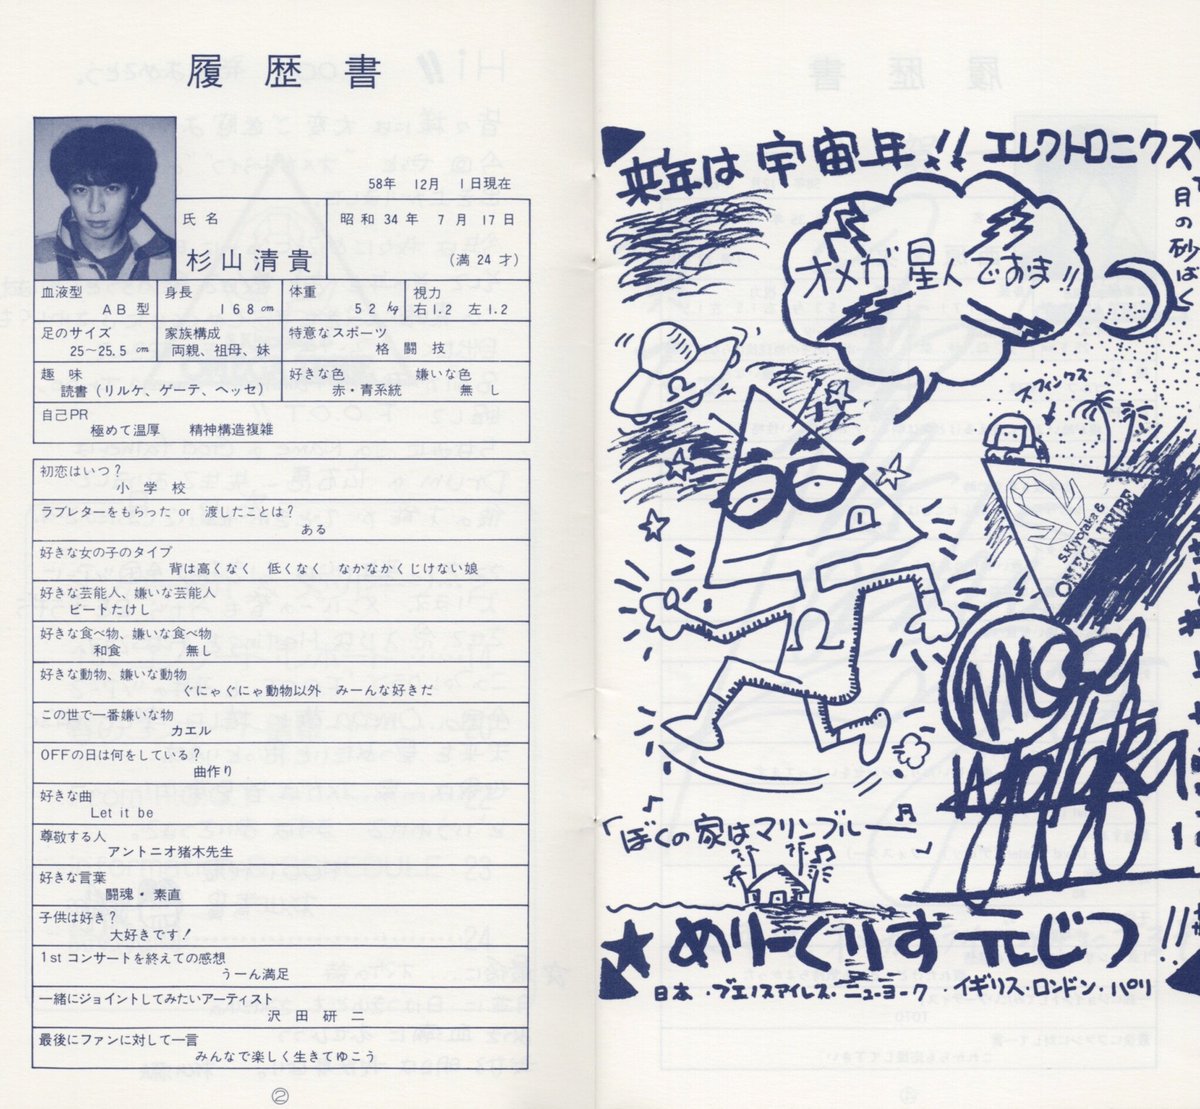 履歴書
58年 12月 1日現在
氏名
昭和34年 7月 17日
杉山清貴
(満24才)
血液型
AB型
身長
168cm
体重
52kg
視力
右1.2 左1.2
足のサイズ
25〜25.5cm
家族構成
両親、祖母、妹
特意なスポーツ
格闘技
趣味
読書(リルケ、ゲーテ、ヘッセ)
好きな色 嫌いな色
赤・青系統 無し
自己PR
極めて温厚 精神構造複雑
初恋はいつ?
小学校
ラブレターをもらった or 渡したことは?
ある
好きな女の子のタイプ
背は高くなく 低くなく なかなかくじけない娘
好きな芸能人、嫌いな芸能人
ビートたけし
好きな食べ物、嫌いな食べ物
和食 無し
好きな動物、嫌いな動物
ぐにゃぐにゃ動物以外 みーんな好きだ
この世で一番嫌いな物
カエル
OFFの日は何をしている?
曲作り
好きな曲
Let it be
尊敬する人
アントニオ猪木先生
好きな言葉
闘魂・素直
子供は好き?
大好きです!
1stコンサートを終えての感想
うーん満足
一緒にジョイントしてみたいアーティスト
沢田研二
最後にファンに対して一言
みんなで楽しく生きてゆこう
②
来年は宇宙年!! エレクトロニクス
月の砂ばく
オメガ星人でおま!!
スフィンクス
S.Kiyotaka &
OMEGA TRIBE
「ぼくの家はマリンブルー」
★めりーくりす元じつ!!
日本・ブエノスアイレス・ニューヨーク・イギリス・ロンドン・パリ